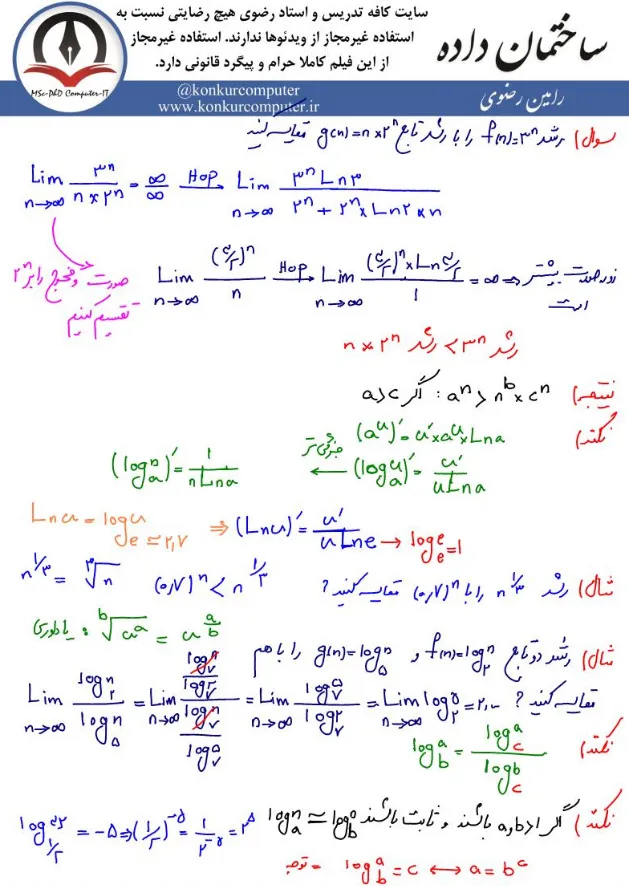 سایت کافه تدریس و استاد رضوی هیچ رضایتی نسبت به
استفاده غیرمجاز از ویدئوها ندارند. استفاده غیرمجاز
از این فیلم کاملا حرام و پیگرد قانونی دارد.
ساختمان داده
MSc-PhD Computer-IT
@konkurcomputer
www.konkurcomputer.ir
رامین رضوی
سوال) رشد f(n)=۳^n را با رشد تابع g(n)=n×۲^n مقایسه کنید
Lim n→∞ ۳^n / n×۲^n = ∞/∞ HOP→ Lim n→∞ ۳^n Ln۳ / ۲^n + ۲^n×Ln۲×n
صورت و مخرج را بر ۲^n تقسیم کنیم
Lim n→∞ (۳/۲)^n / n HOP→ Lim n→∞ (۳/۲)^n×Ln۳/۲ / ۱ = ∞ ⇒ زور صورت بیشتر است
رشد ۳^n > رشد n×۲^n
نتیجه) a>c اگر : a^n > n^b×c^n
نکته) (a^u)′=u′×a^u×Lna
(log_a^n)′= ۱/nLna ← جزئی تر (log_a^u)′= u′/uLna
Lnu = log_e^u e≃۲,۷ ⇒ (Lnu)′= u′/uLne → log_e^e=1
مثال) رشد n^۱/۳ را با (۰,۷)^n مقایسه کنید ? (۰,۷)^n < n^۱/۳ n^۱/۳ = ۳√n
یادآوری : b√u^a = u^a/b
مثال) رشد دو تابع f(n)=log_۲^n و g(n)=log_۵^n را با هم
مقایسه کنید ? Lim n→∞ log_۲^n / log_۵^n = Lim n→∞ (log_۷^n / log_۷^۲) / (log_۷^n / log_۷^۵) = Lim n→∞ log_۷^۵ / log_۷^۲ = Lim n→∞ log_۲^۵ = ۲,۰۰
نکته) log_b^a = log_c^a / log_c^b
نکته) اگر a,b>1 باشند و ثابت باشند log_a^n ≃ log_b^n
log_۱/۲^۳۲ = −۵ ⇒ (۱/۲)^−۵ = ۱/۲^−۵ = ۲^۵
توجه = log_b^a = c ⟷ a = b^c